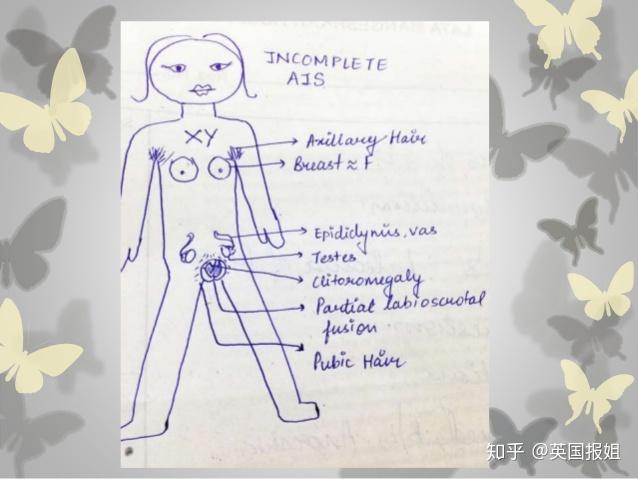 INCOMPLETE
AIS
XY
Axillary Hair
Breast ≈ F
Epididymis, vas
Testes
Clitoromegaly
Partial labioscrotal
fusion
Pubic Hair
知乎 @英国报姐